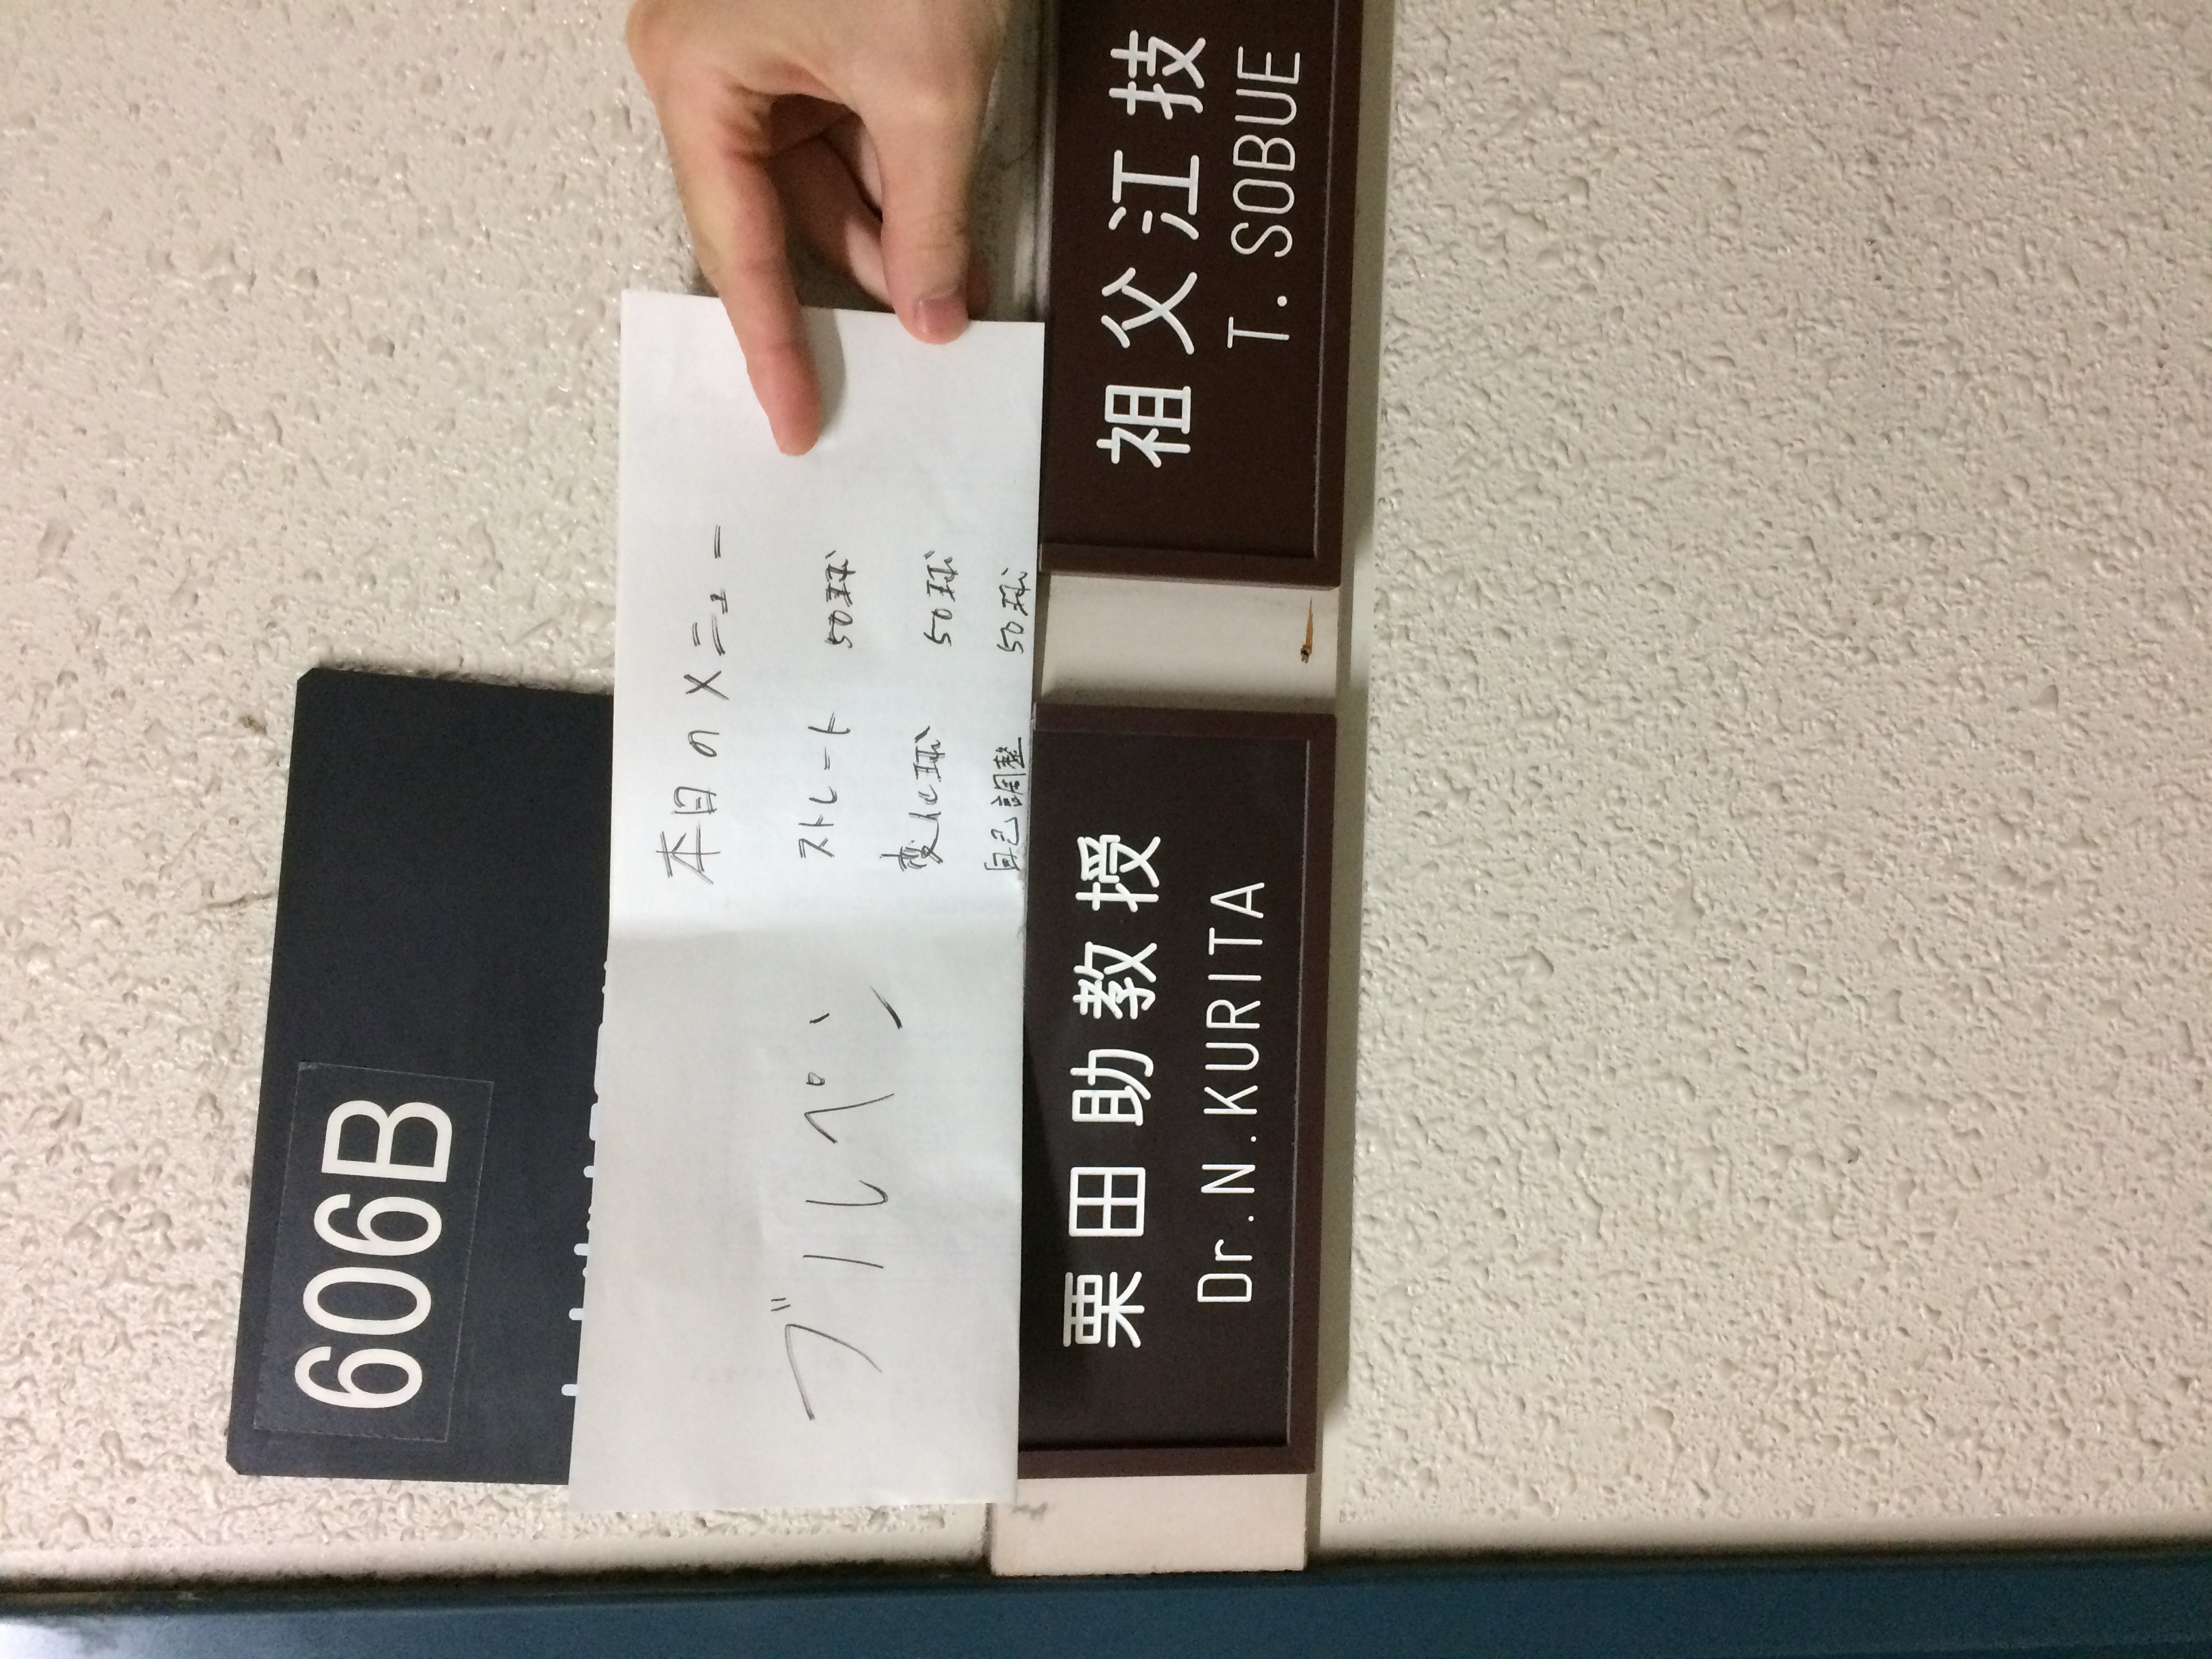 606B
ブルペン
本日のメニュー
ストレート 50球
変化球 50球
自己調整 50球
栗田助教授
Dr.N.KURITA
祖父江技
T. SOBUE